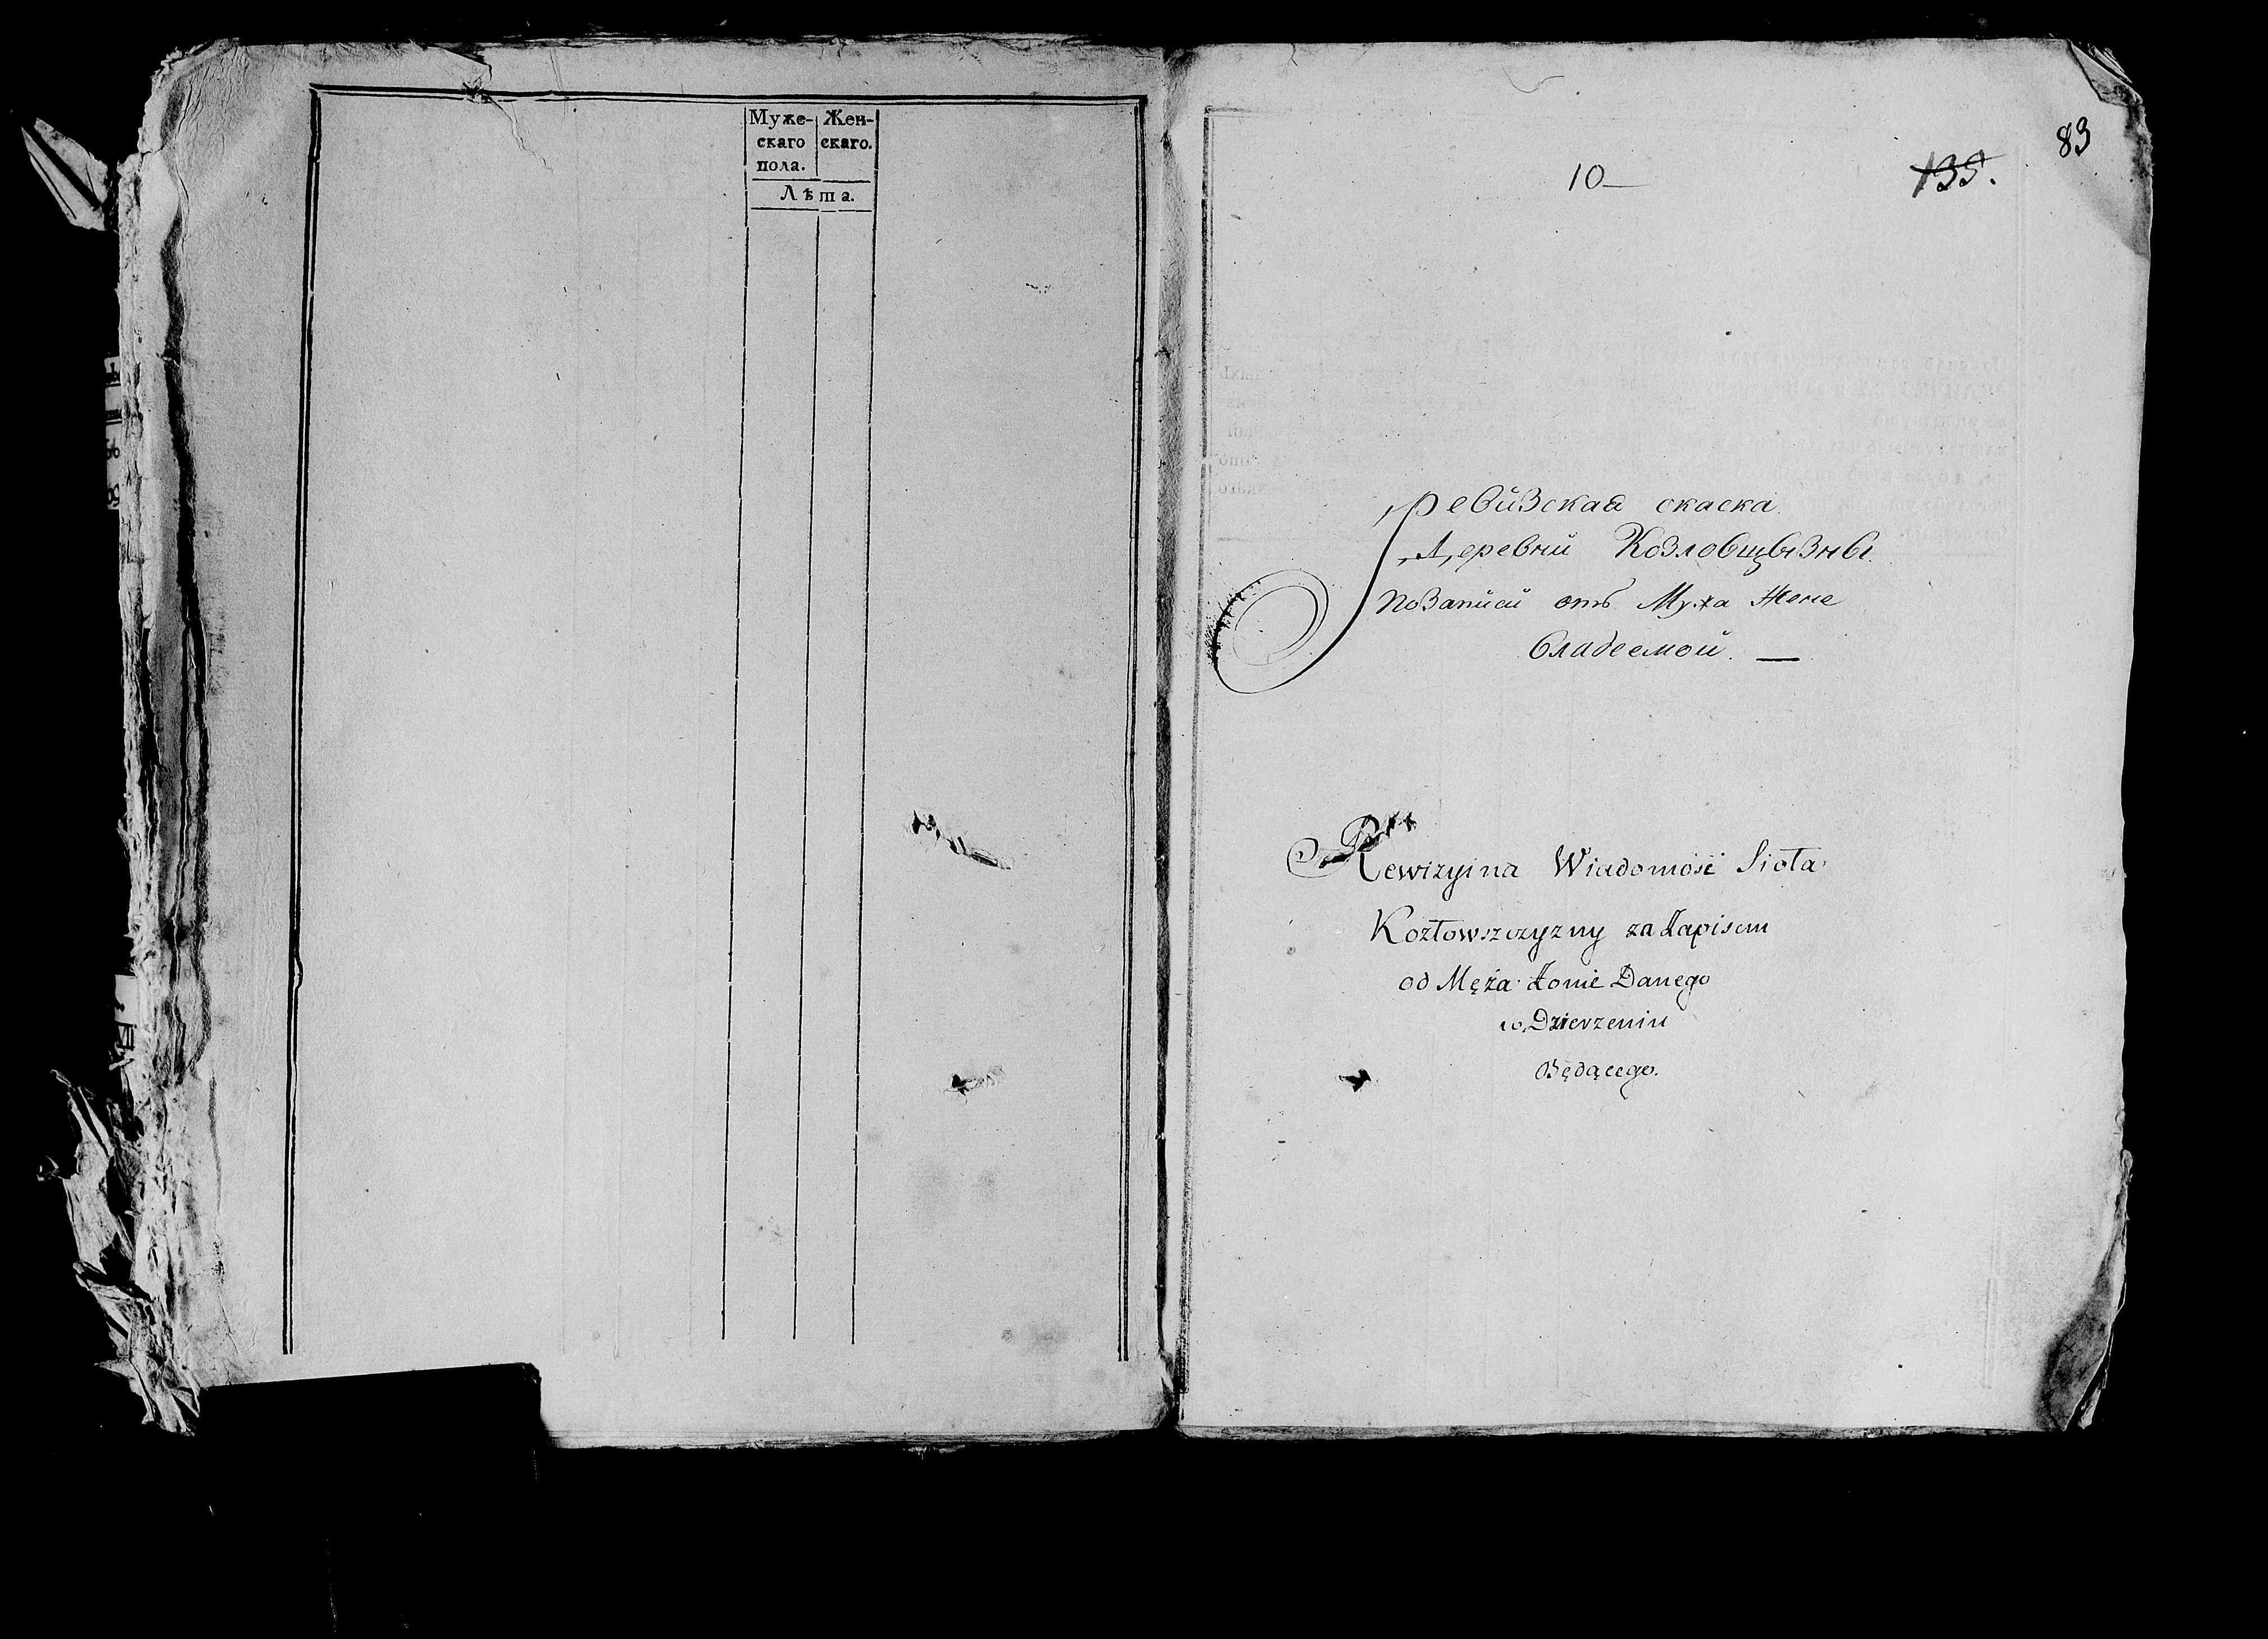 Муже-
скаго
пола.
Жен-
скаго.
Лѣта.
83
10—
135.
Ревизская скаска
Деревни Козловщызны
по записи отъ Мужа Жене
владеемой. —
Rewizyina Wiadomość Sioła
Kozłowszczyzny za Zapisem
od Męża Żonie Danego
w Dzierzeniu
Będącego.